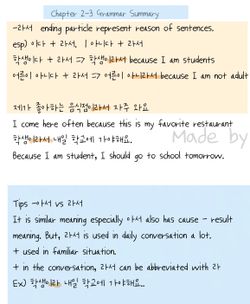 Chapter 2-3 Grammar Summary
-라서 ending particle represent reason of sentences.
esp) 이다 + 라서, 아니다 + 라서
학생이다 + 라서 => 학생이라서 because I am students
어른이 아니다 + 라서 => 어른이 아니라서 because I am not adult
제가 좋아하는 음식점이라서 자주 와요
I come here often because this is my favorite restaurant
학생이라서 내일 학교에 가야해요..
Made by
Because I am student, I should go to school tomorrow.
Tips →아서 vs 라서
It is similar meaning especially 아서 also has cause - result
meaning. But, 라서 is used in daily conversation a lot.
+ used in familiar situation.
+ in the conversation, 라서 can be abbreviated with 라
Ex) 학생이라 내일 학교에 가야해요..